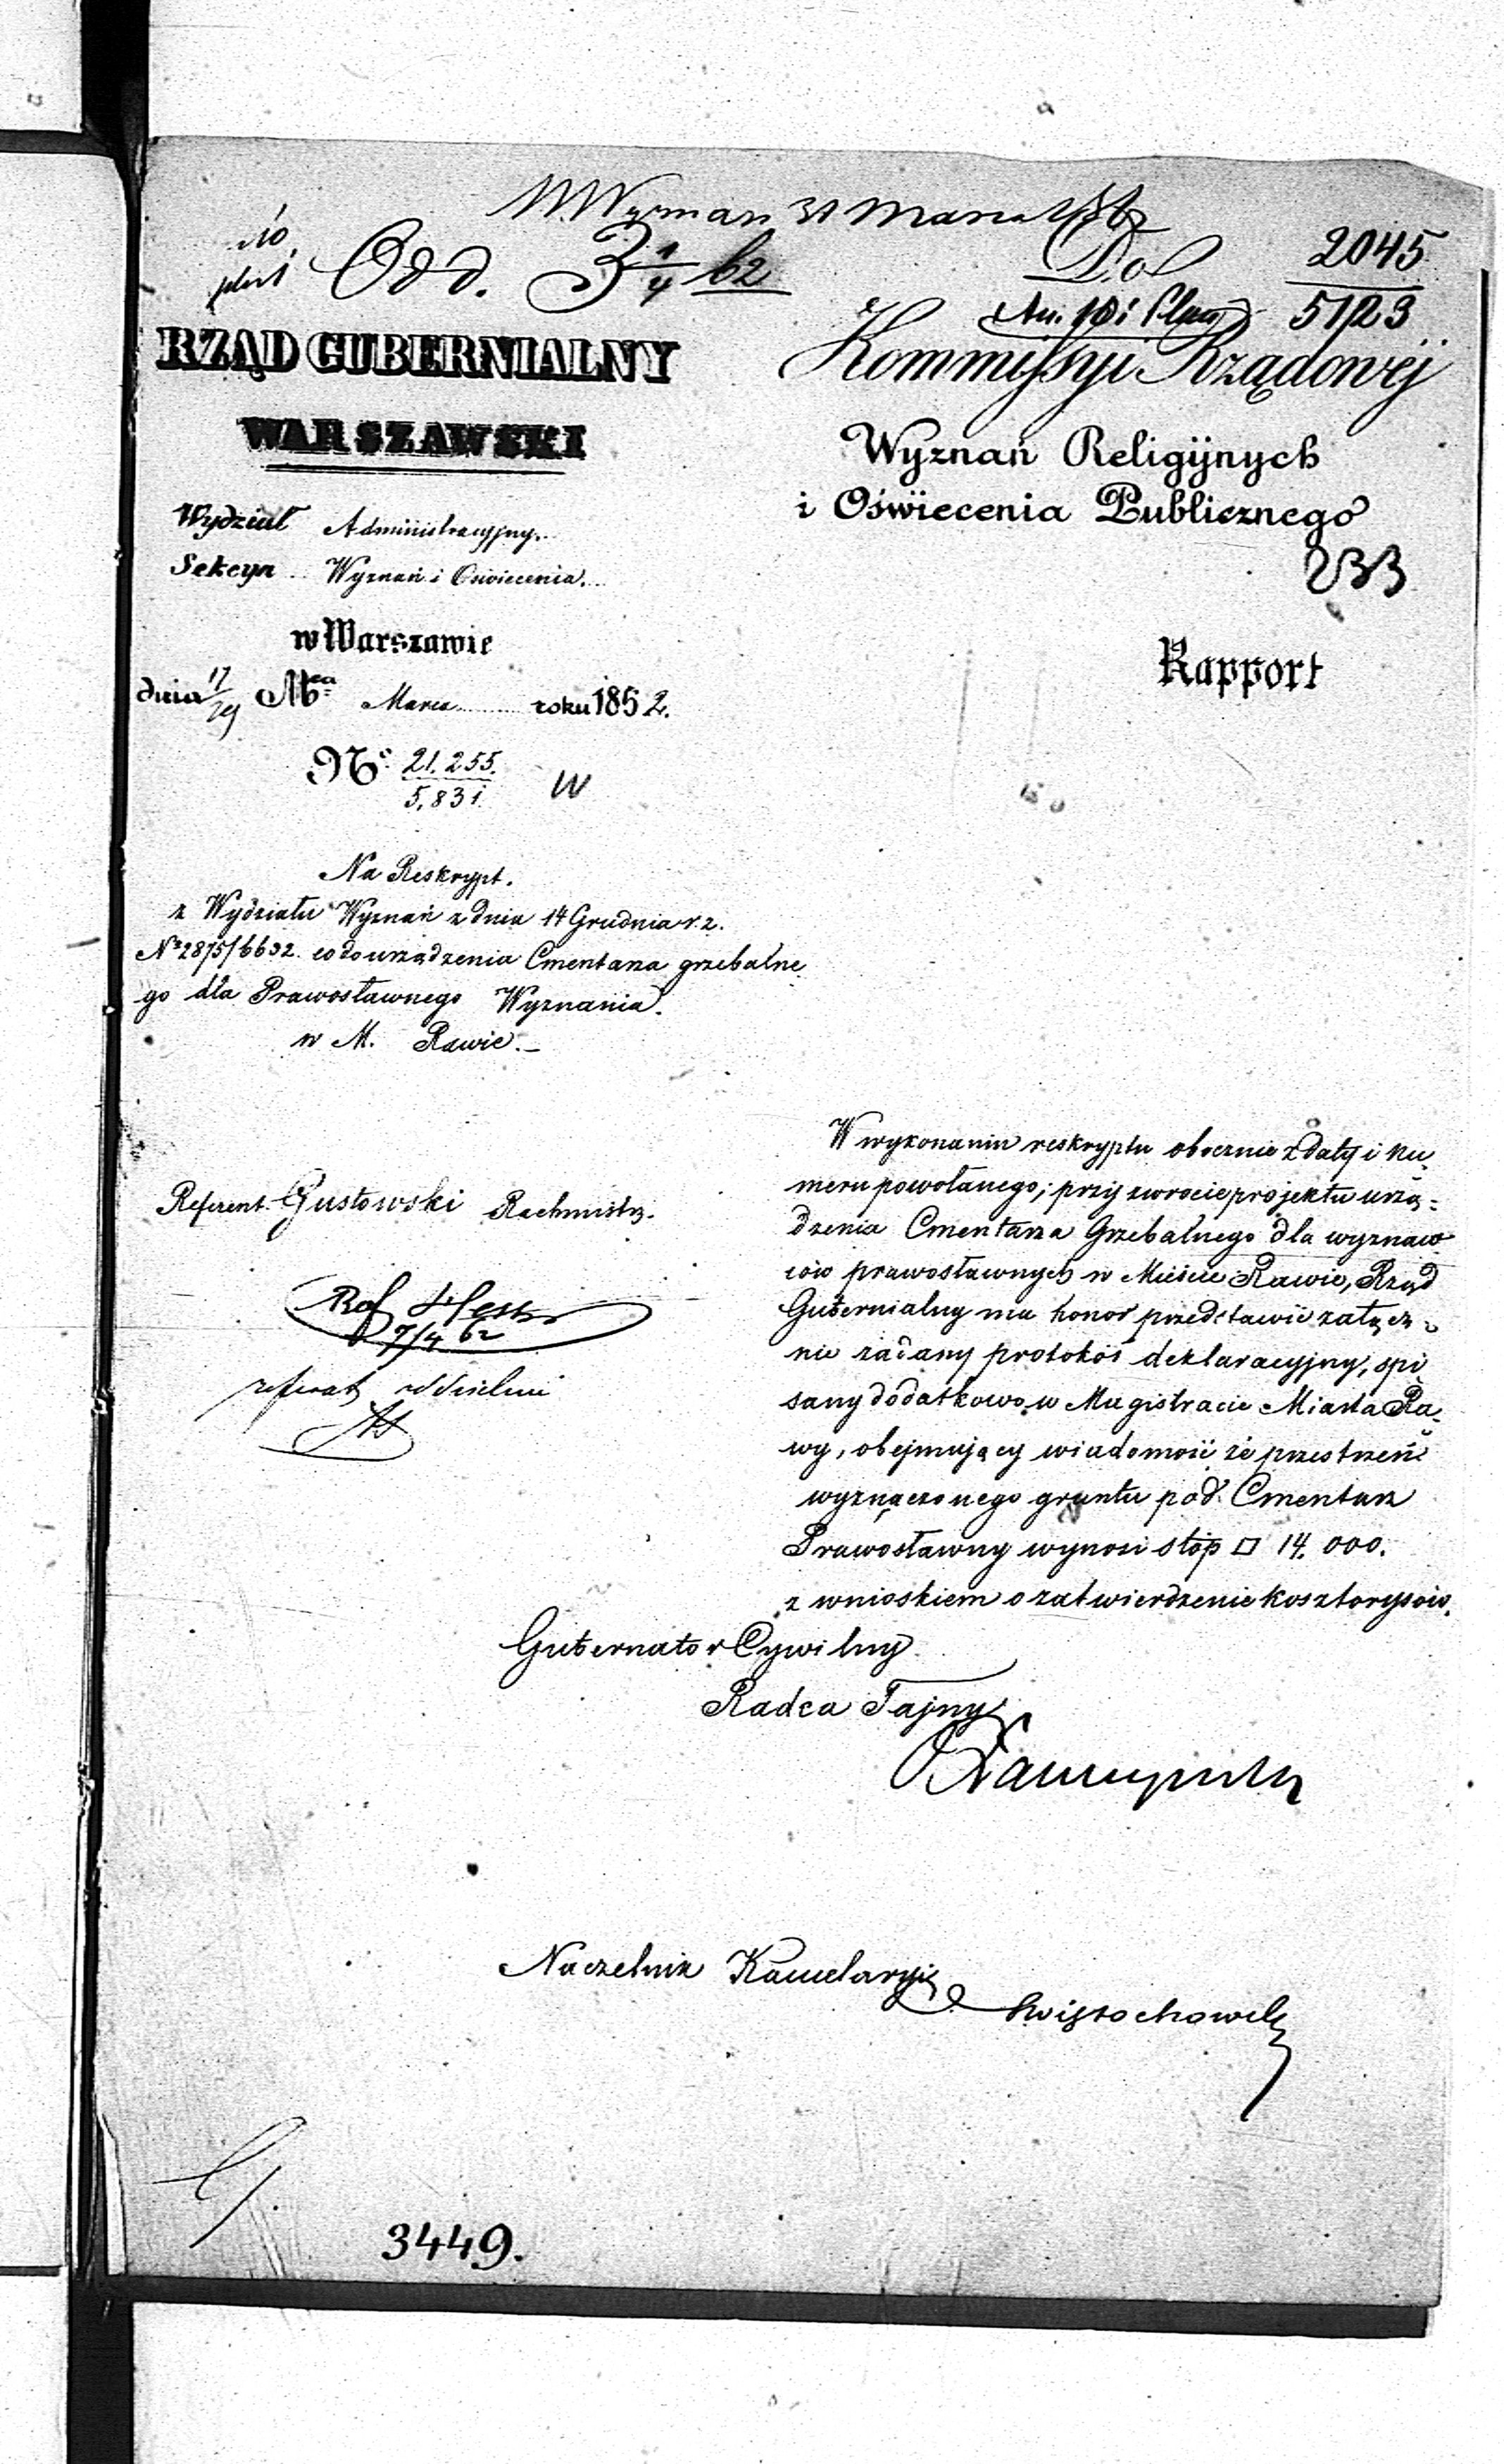 W. Wyznań 31 Marca
Odd. 3 1/4 62
Do
2045
5123
RZĄD GUBERNIALNY
WARSZAWSKI
Kommissyi Rządowéj
Wyznań Religijnych
i Oświecenia Publicznego
233
Wydział Administracyjny.
Sekcya Wyznań i Oświecenia.
w Warszawie
dnia 17/29 Mca Marca roku 1862.
No 21.255.
5,831. W
Rapport
Na Reskrypt.
z Wydziału Wyznań z dnia 14 Grudnia r. z.
No 2875/6632. co do urządzenia Cmentarza grzebalne
go dla Prawosławnego Wyznania.
w M. Rawie.
Referent Gustowski Rachmistrz.
Ref
7/4 62
referat
W wykonaniu reskryptu obocznie z daty i nu„
meru powołanego; przy zwrocie projektu urzą=
dzenia Cmentarza Grzebalnego dla wyznaw
ców prawosławnych w Mieście Rawie, Rząd
Gubernialny ma honor przedstawić załącz„
nie żądany protokół deklaracyjny, spi
sany dodatkowo w Magistracie Miasta Ra„
wy, obejmujący wiadomość że przestrzeń
wyznaczonego gruntu pod Cmentarz
Prawosławny wynosi stóp □ 14.000.
z wnioskiem o zatwierdzenie kosztorysów.
Gubernator Cywilny
Radca Tajny
Naczelnik Kancelaryi
Świętochowski
3449.